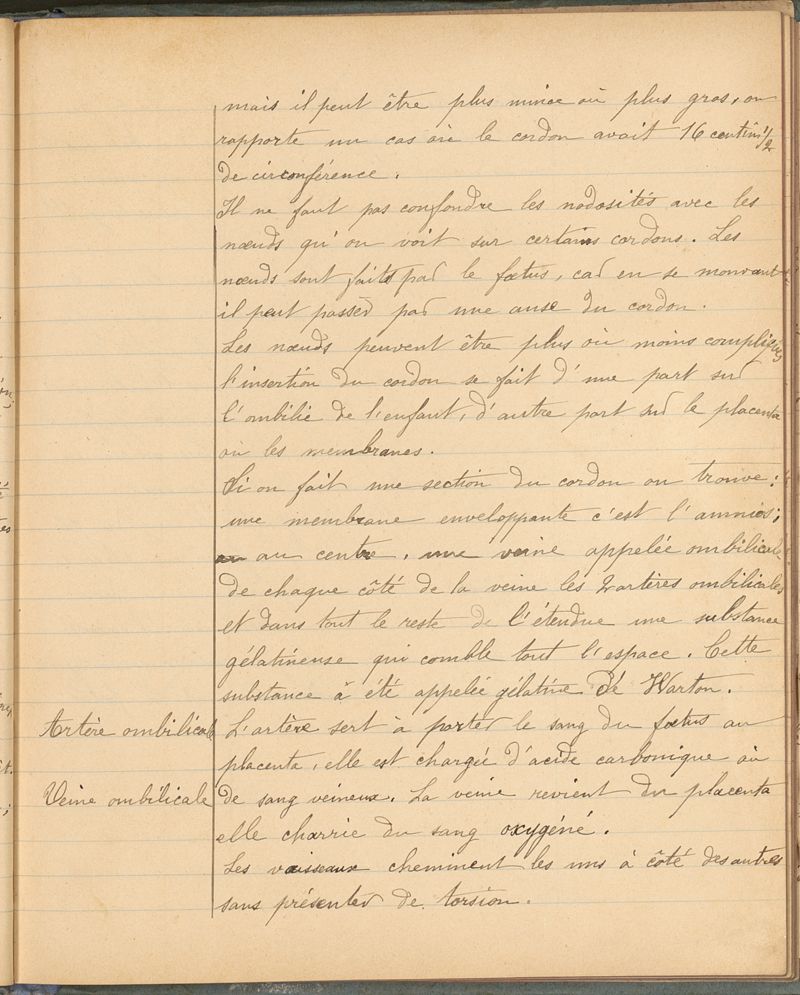 mais il peut être plus mince où plus gros, on
rapporte un cas où le cordon avait 16 centim 1/2
de circonférence.
Il ne faut pas confondre les nodosités avec les
nœuds qu'on voit sur certains cordons. Les
nœuds sont faits par le fœtus, car en se mouvant
il peut passer par une anse du cordon.
Les nœuds peuvent être plus où moins compliqués
l'insertion du cordon se fait d'une part sur
l'ombilic de l'enfant, d'autre part sur le placenta
où les membranes.
Si on fait une section du cordon on trouve:
une membrane enveloppante c'est l'amnios;
au centre, une veine appelée ombilicale
de chaque côté de la veine les 2 artères ombilicales
et dans tout le reste de l'étendue une substance
gélatineuse qui comble tout l'espace. Cette
substance à été appelée gélatine de Warton.
Artère ombilicale L'artère sert à porter le sang du fœtus au
placenta, elle est chargée d'acide carbonique où
Veine ombilicale de sang veineux. La veine revient du placenta
elle charrie du sang oxygéné.
Les vaisseaux cheminent les uns à côté des autres
sans présenter de torsion.